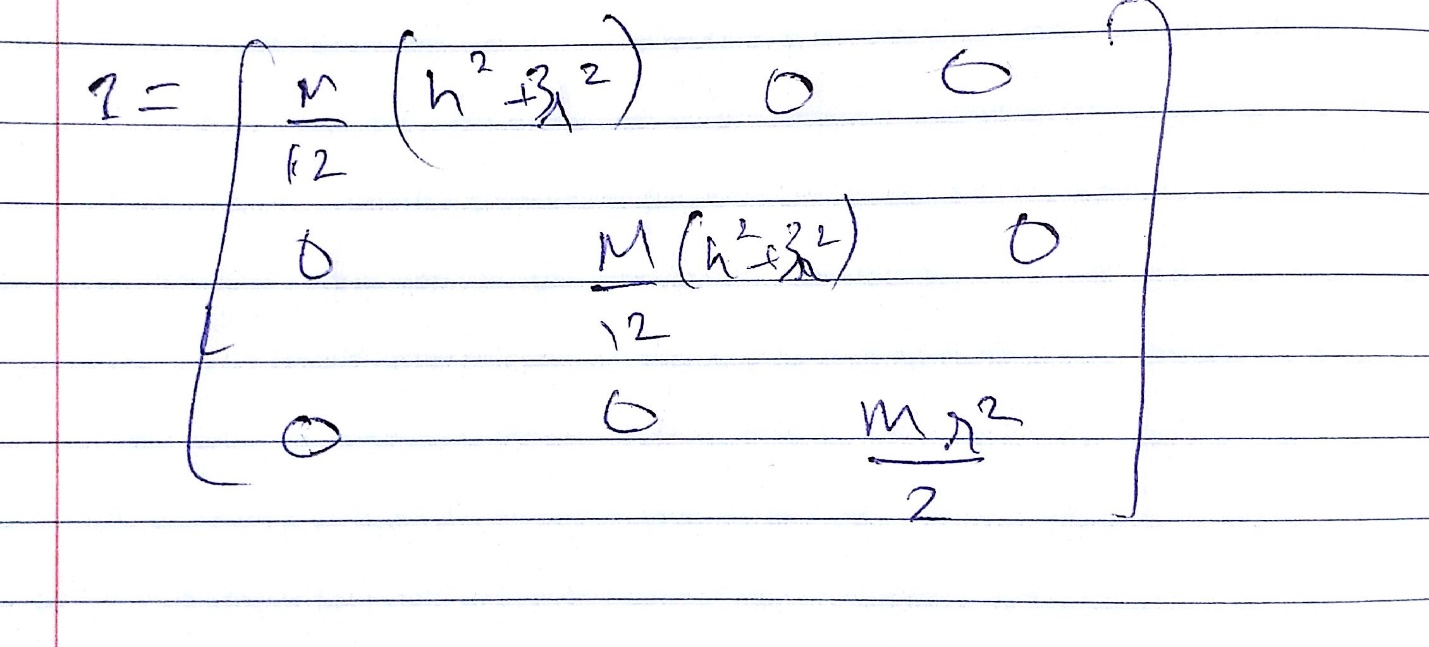 I = [ M/12 (h² + 3r²) 0 0
0 M/12 (h² + 3r²) 0
0 0 mr²/2 ]